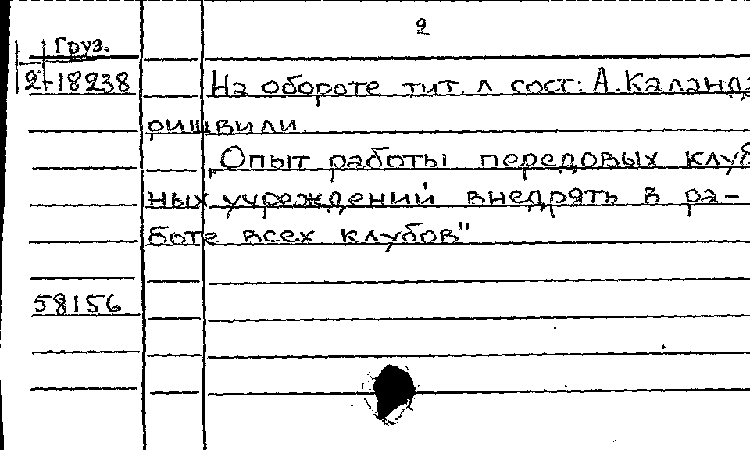 2
Груз.
2-18238
На обороте тит. л сост: А. Каланда
ришвили.
„Опыт работы передовых клуб
ных учреждений внедрять в ра-
боте всех клубов"
58156